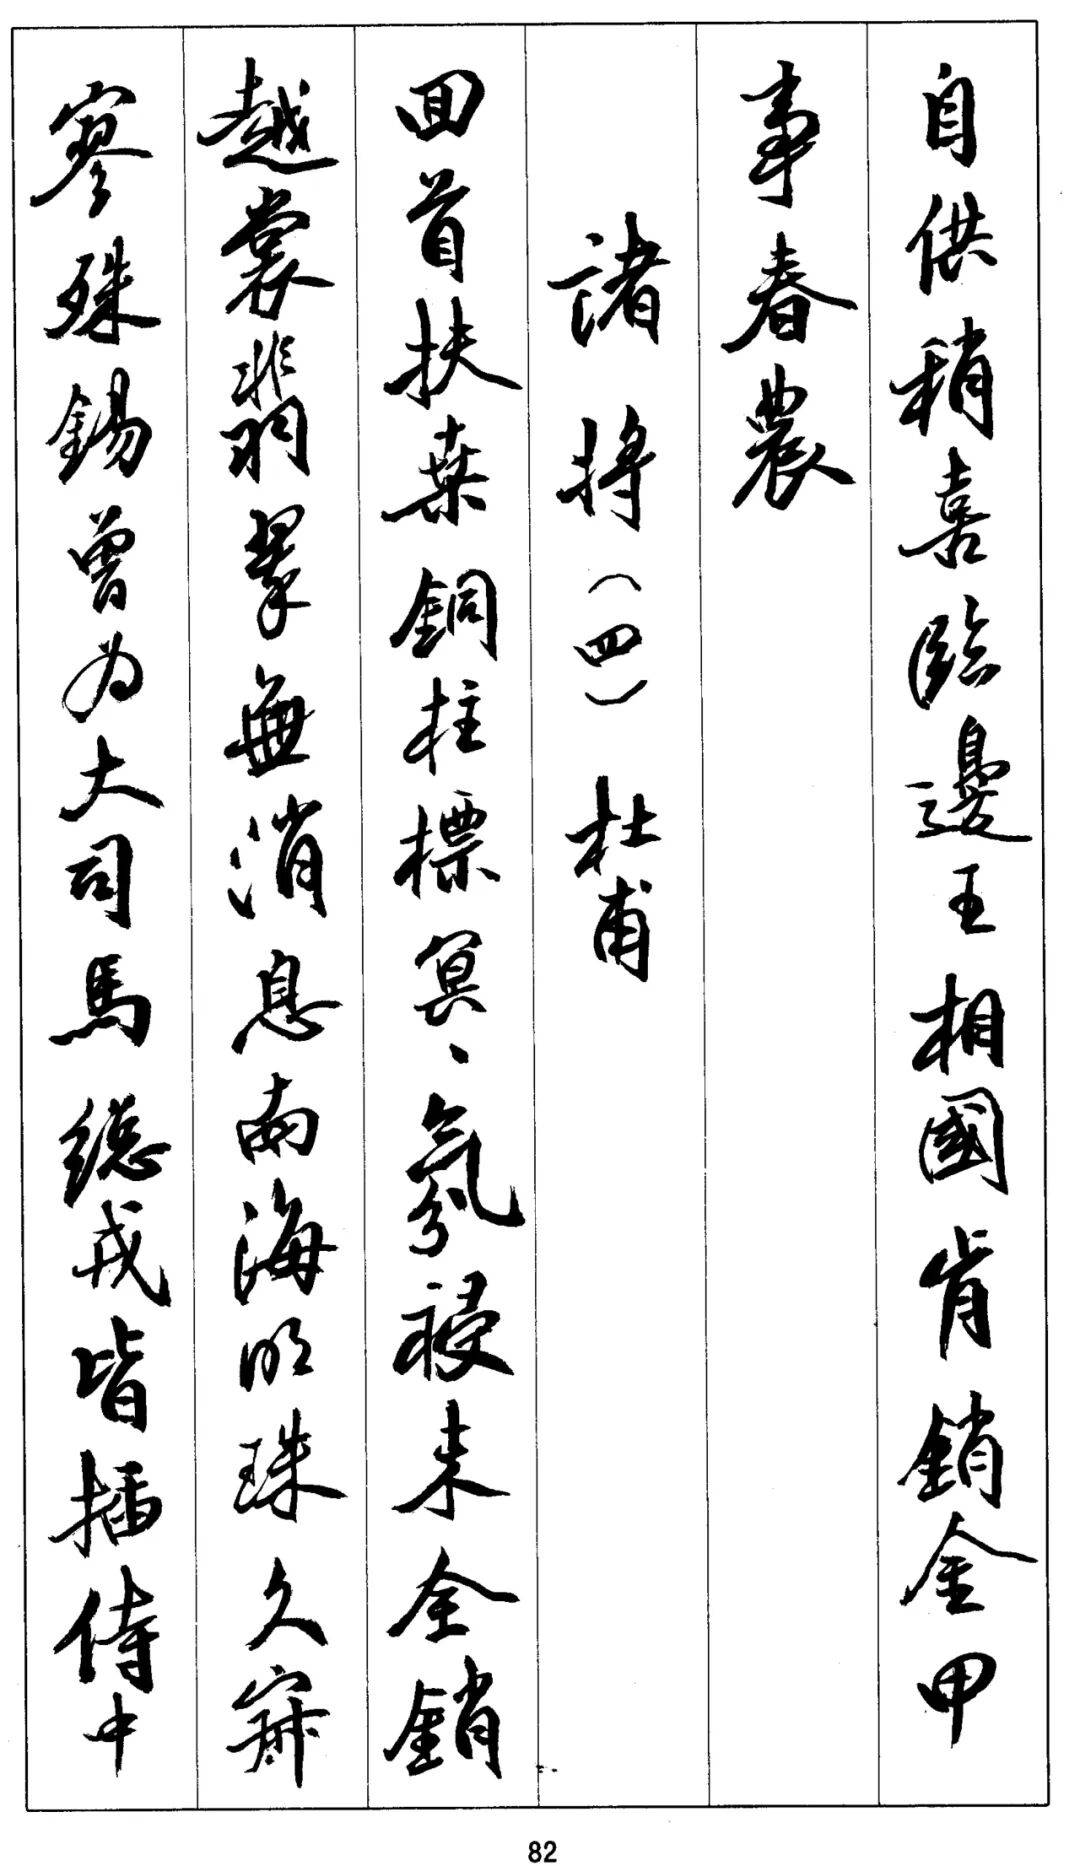 自供稍喜臨邊王相國肯銷金甲
事春農
諸將（四）杜甫
回首扶桑銅柱標冥、氛祲未全銷
越裳翡翠無消息南海明珠久寂
寥殊錫曾為大司馬總戎皆插侍中
82